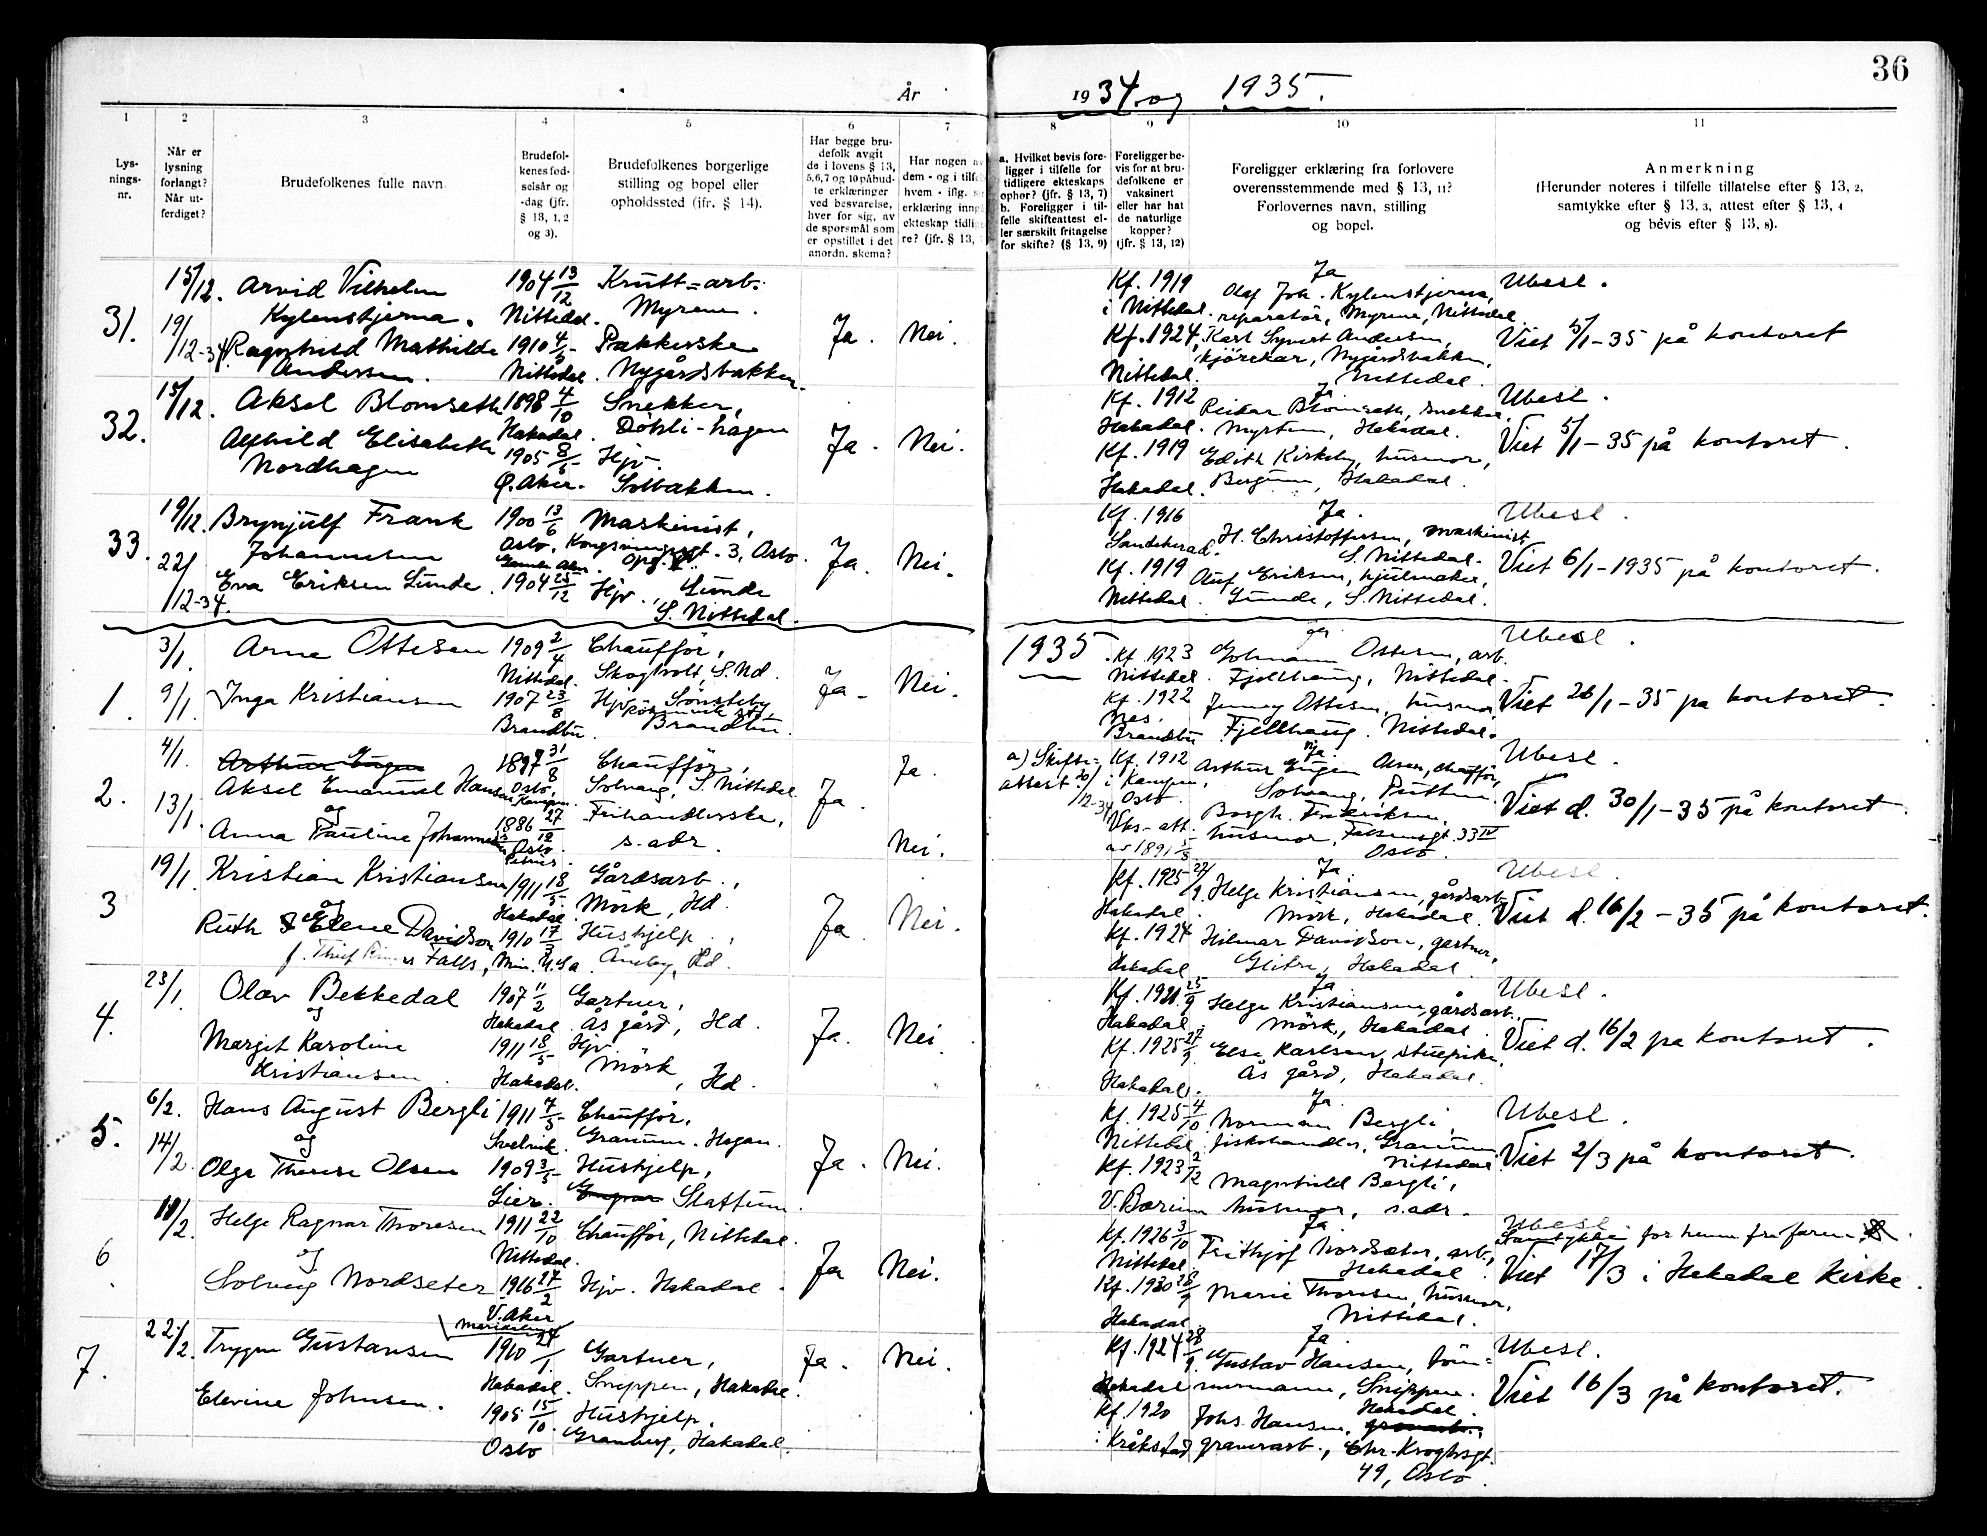 36
År
1934 og 1935.
1
2
3
4
5
6
7
8
9
10
11
Lys-
nings-
nr.
Når er
lysning
forlangt?
Når ut-
ferdiget?
Brudefolkenes fulle navn.
Brudefol-
kenes fød-
selsår og
-dag (jfr.
§ 13, 1, 2
og 3).
Brudefolkenes borgerlige
stilling og bopel eller
opholdssted (jfr. § 14).
Har begge bru-
defolk avgit
de i lovens § 13,
5,6,7 og 10 påbud-
te erklæringer
ved besvarelse,
hver for sig, av
de spørsmål som
er opstillet i det
anordn. skema?
Har nogen av
dem - og i tilfe
hvem - iflg. s
erklæring inng
ekteskap tidlig
re? (jfr. § 13,
a. Hvilket bevis fore-
ligger i tilfelle for
tidligere ekteskaps
ophør? (jfr. § 13, 7)
b. Foreligger i til-
felle skifteattest el-
ler særskilt fritagelse
for skifte? (§ 13, 9)
Foreligger be-
vis for at bru-
defolkene er
vaksinert
eller har hat
de naturlige
kopper?
(jfr. § 13, 12)
Foreligger erklæring fra forlovere
overensstemmende med § 13, 11?
Forlovernes navn, stilling
og bopel.
Anmerkning
(Herunder noteres i tilfelle tillatelse efter § 13, 2,
samtykke efter § 13, 3, attest efter § 13, 4
og bevis efter § 13, 8).
31.
15/12.
19/12-34.
Arvid Vilhelm
Kylenstjerna.
Ragnhild Mathilde
Andersen.
1904 13/12
Nittedal.
1910 4/5
Nittedal.
Krutt=arb.
Myrene.
Pakkerske
Nygårdsbakken.
Ja.
Nei.
Kf. 1919
i Nittedal.
Kf. 1924,
Nittedal.
Ja
Olaf Joh. Kylenstjerna,
reparatør, Myrene, Nittedal
Karl Syvert Andersen,
kjørekar, Nygårdsbakken,
Nittedal.
Ubesl.
Viet 5/1-35 på kontoret
32.
15/12.
Aksel Blomseth
Alfhild Elisabeth
Nordhagen
1898 4/10
Hakadal.
1905 8/5
Ø. Aker.
Snekker,
Døhli-hagen
Hjv.
Solbakken.
Ja.
Nei.
Kf. 1912
Hakadal.
Kf. 1919
Hakadal.
Ja
Reidar Blomseth, snekker,
Myrtun, Hakadal.
Edith Kirkeby, husmor,
Bergum, Hakadal.
Ubesl.
Viet 5/1-35 på kontoret.
33.
19/12.
22/12-34.
Brynjulf Frank
Johannesen
Eva Eriksen Sunde.
1900 13/6
Oslo.
Gamle Aker.
1904 25/12
Maskinist,
Kongsvingergt. 3, Oslo.
Hjv., Sunde
S. Nittedal.
Ja.
Nei.
Kf. 1916
Sandeherad.
Kf. 1919
Nittedal.
Ja.
H. Christoffersen, maskinist
S. Nittedal.
Oluf Eriksen, hjulmaker,
Sunde, S. Nittedal.
Ubesl.
Viet 6/1-1935 på kontoret.
1935
1.
3/1.
9/1.
Arne Ottesen
Inga Kristiansen
1909 2/4
Nittedal.
1907 23/8
Brandbu.
Chauffør,
Skogholt, S. Nd.
Hjv. Sønsteby
Brandbu.
Ja.
Nei.
Kf. 1923
Nittedal
Kf. 1922
Nes.
Brandbu
Ottesen, arb.
Fjellhaug, Nittedal.
Jenny Ottesen, husmor
Fjellhaug. Nittedal.
Ubesl.
Viet 26/1-35 på kontoret.
2.
4/1.
13/1.
Arthur Eugen
Aksel Emanuel Hansen
og
Anna Pauline Johannesen
1897 31/8
Oslo,
Kampen.
1886 27/12
Oslo
Petrus.
Chauffør,
Solvang, S. Nittedal
Frihandlerske,
s. adr.
Ja.
Ja.
Nei.
a) Skifte-
attest. 20/12-34
Kf. 1912
i Kampen,
Oslo.
Vks-att.
av 1891 5/8
Ja.
Arthur Eugen Olsen, chauffør,
Solvang,
Borgh. Fredriksen,
husmor, Falsensgt. 33 IV
Oslo.
Ubesl.
Viet d. 30/1-35 på kontoret.
3
19/1.
Kristian Kristiansen
og
Ruth Elene Davidson
f. Thief River Falls, Min. U.S.a.
1911 18/5
Hakadal.
1910 17/3
Gårdsarb.,
Mørk, Hd.
Hushjelp,
Åneby, Hd.
Ja.
Nei.
Kf. 1925 27/9
Hakadal.
Kf. 1924
Hakadal
Ja.
Helge Kristiansen, gårdsarb.
Mörk, Hakadal.
Hilmar Davidson, gartner,
Glitre, Hakadal.
Ubesl.
Viet d. 16/2-35 på kontoret.
4.
23/1.
Olav Bekkedal
og
Margit Karoline
Kristiansen.
1907 11/2
Hakadal.
1911 18/5
Hakadal.
Gartner,
Ås gård, Hd.
Hjv.
Mörk, Hd.
Ja.
Nei.
Kf. 1921 25/9
Hakadal.
Kf. 1925 27/9
Hakadal.
Ja
Helge Kristiansen, gårdsarb.
Mörk, Hakadal.
Else Karlsen, stuepike,
Ås gård, Hakadal.
Ubesl.
Viet d. 16/2 på kontoret.
5.
6/2.
14/2.
Hans August Bergli
og
Olga Therese Olsen
1911 7/5
Svelvik.
1909 3/5
Lier.
Chauffør,
Granum. Hagan.
Hushjelp,
Slattum.
Ja.
Nei.
Kf. 1925 4/10
Nittedal.
Kf. 1923 2/12
V. Bærum
Ja.
Norman Bergli,
fiskehandler, Granum
Nittedal.
Magnhild Bergli,
husmor, s. adr.
Ubesl.
Viet 2/3 på kontoret.
6.
18/2.
Helge Ragnar Thoresen
og
Solveig Nordseter
1911 22/10
Nittedal.
1916 27/2
V. Aker
Chauffør, Nittedal.
Hjv. Hakadal.
Ja
Nei.
Kf. 1926 3/10
Nittedal.
Kf. 1930 28/9
Hakadal.
Ja.
Frithjof Nordseter, arb.,
Hakadal.
Marie Thoresen, husmor,
Nittedal.
Ubesl.
Samtykke for henne fra faren.
Viet 17/3 i Hakadal kirke.
7.
22/2.
Trygve Gustavsen
Elevine Johnsen.
1910 24/1.
Hakadal.
1905 15/10.
Oslo
Gartner,
Snippen, Hakadal.
Hushjelp,
Granberg, Hakadal.
Ja.
Nei.
Kf. 1924 28/9.
Hakadal
Kf. 1920
i Kråkstad
Ja.
Gustav Hansen, töm=
mermann, Snippen.
Hakadal.
Johs. Hansen,
graverarb., Chr. Kroghsgt.
49, Oslo.
Ubesl.
Viet 16/3 på kontoret.